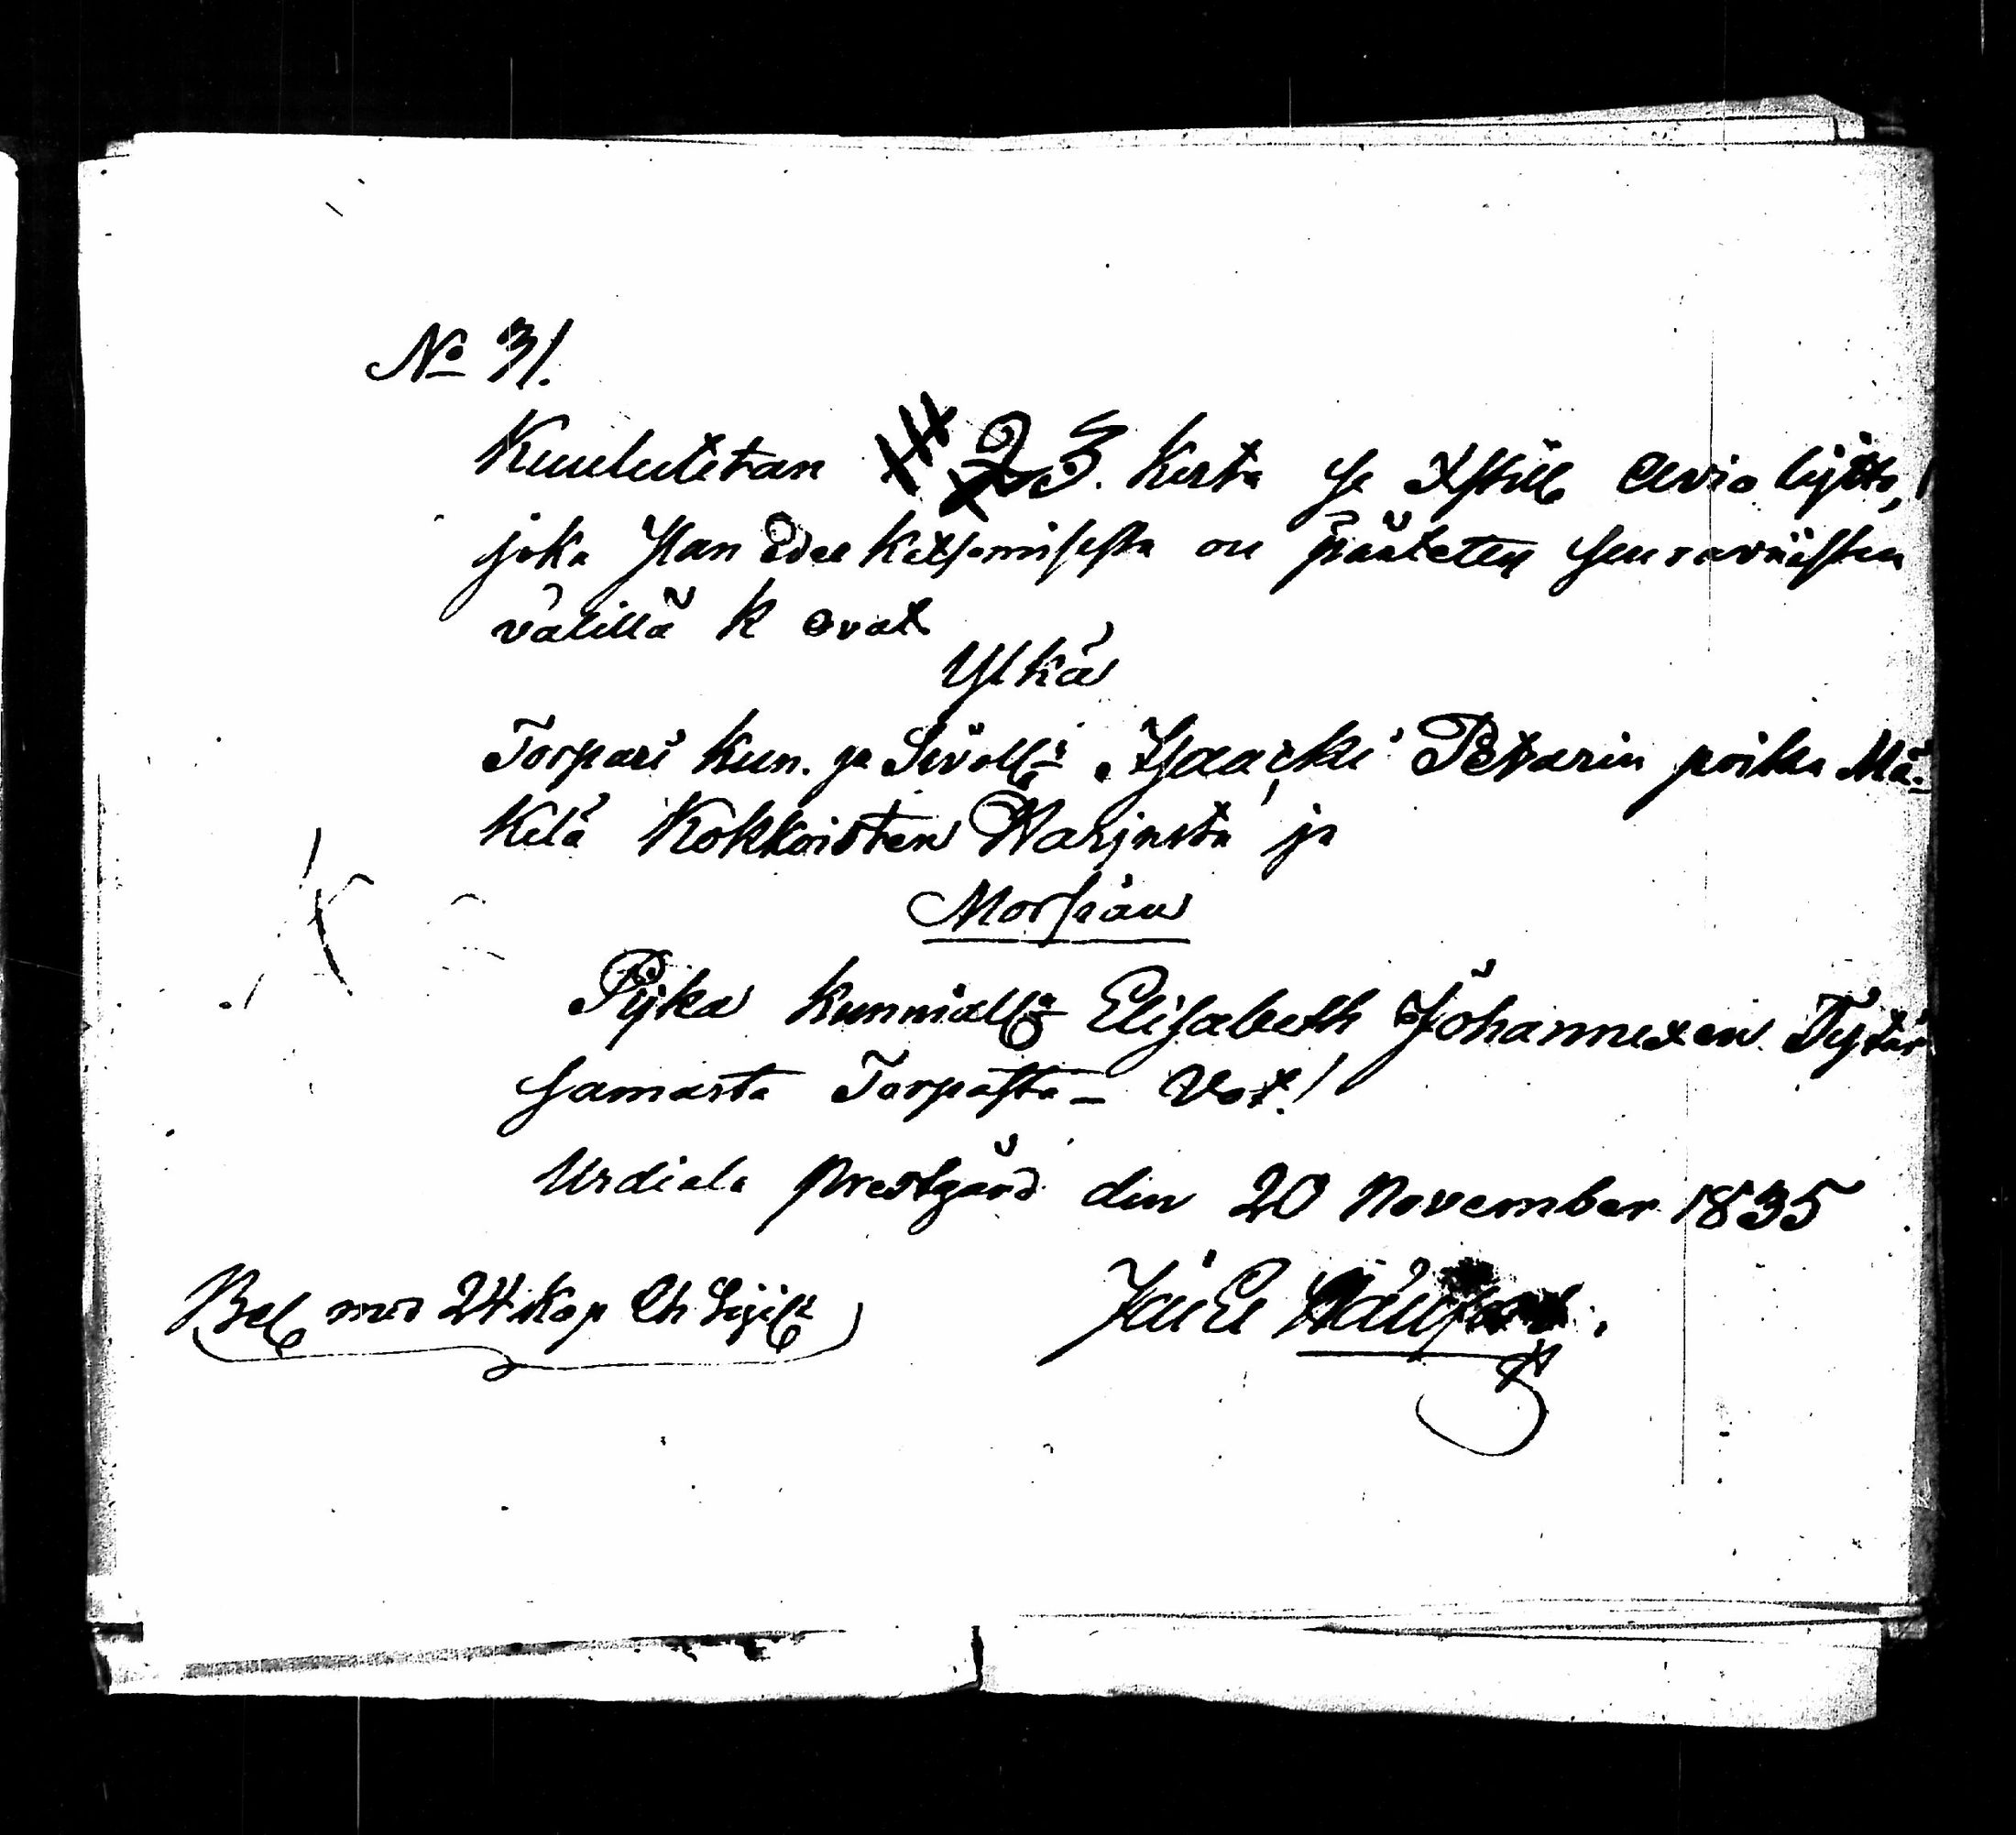 No 31.
Kuulutetan 2 3. Kerta se Xstill. Avio liitto,
joka Jlan edes katsomisesta on päätetty seuraavaisten
välillä k ovat
Ylkä
Torpari Kun. ja Sivoll. Isaacki Petarin poika Mä-
kelä Kokkoisten Harjusta ja
Morsian
Pijka kunniall. Elisabeth Johannexen Tytär
samasta Torpasta - Vot!
Urdiala Prestgård den 20 November 1835
Bet med 24 Kop